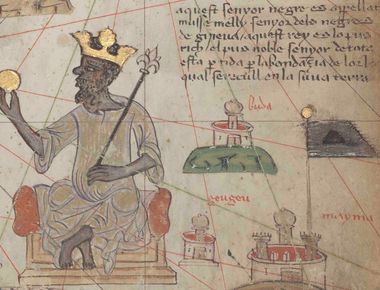 aquest senyor negre es appellat
musse melly senyor dels negres
de gineva / aquest rey es lo pus
rich / el pus noble senyor de tota
esta partida p labondazia de lor lo
qual se recull en la suua terra
buda
geugeu
mayma